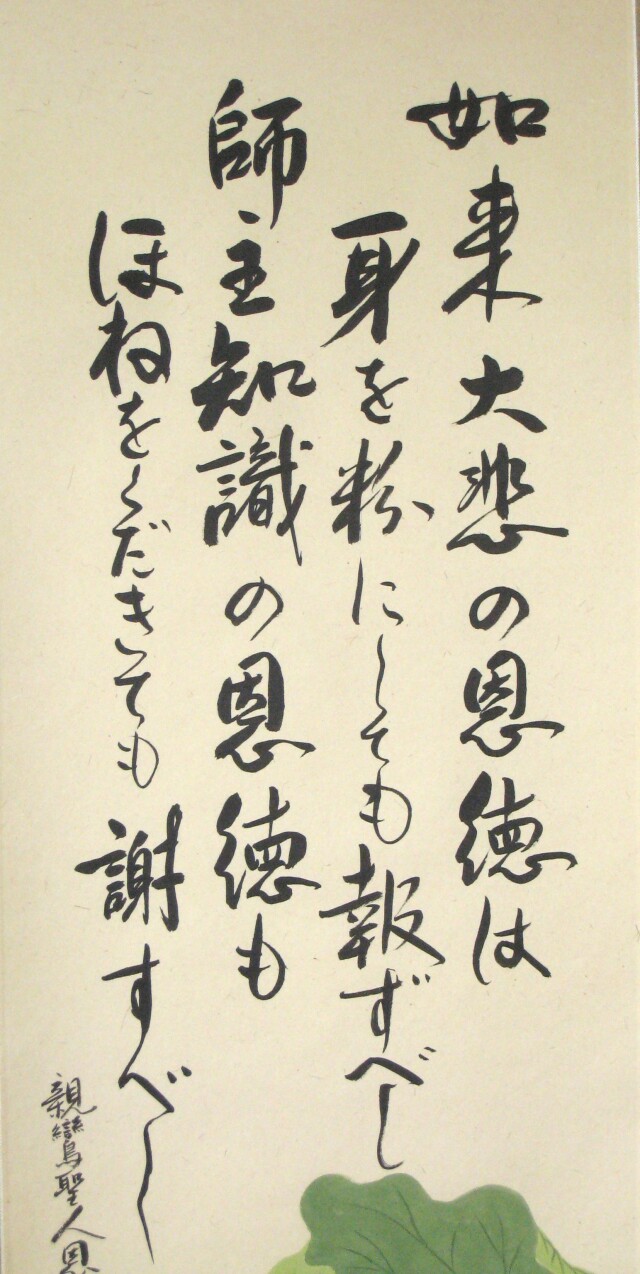 如来大悲の恩徳は
身を粉にしても報ずべし
師主知識の恩徳も
ほねをくだきても謝すべし
親鸞聖人恩